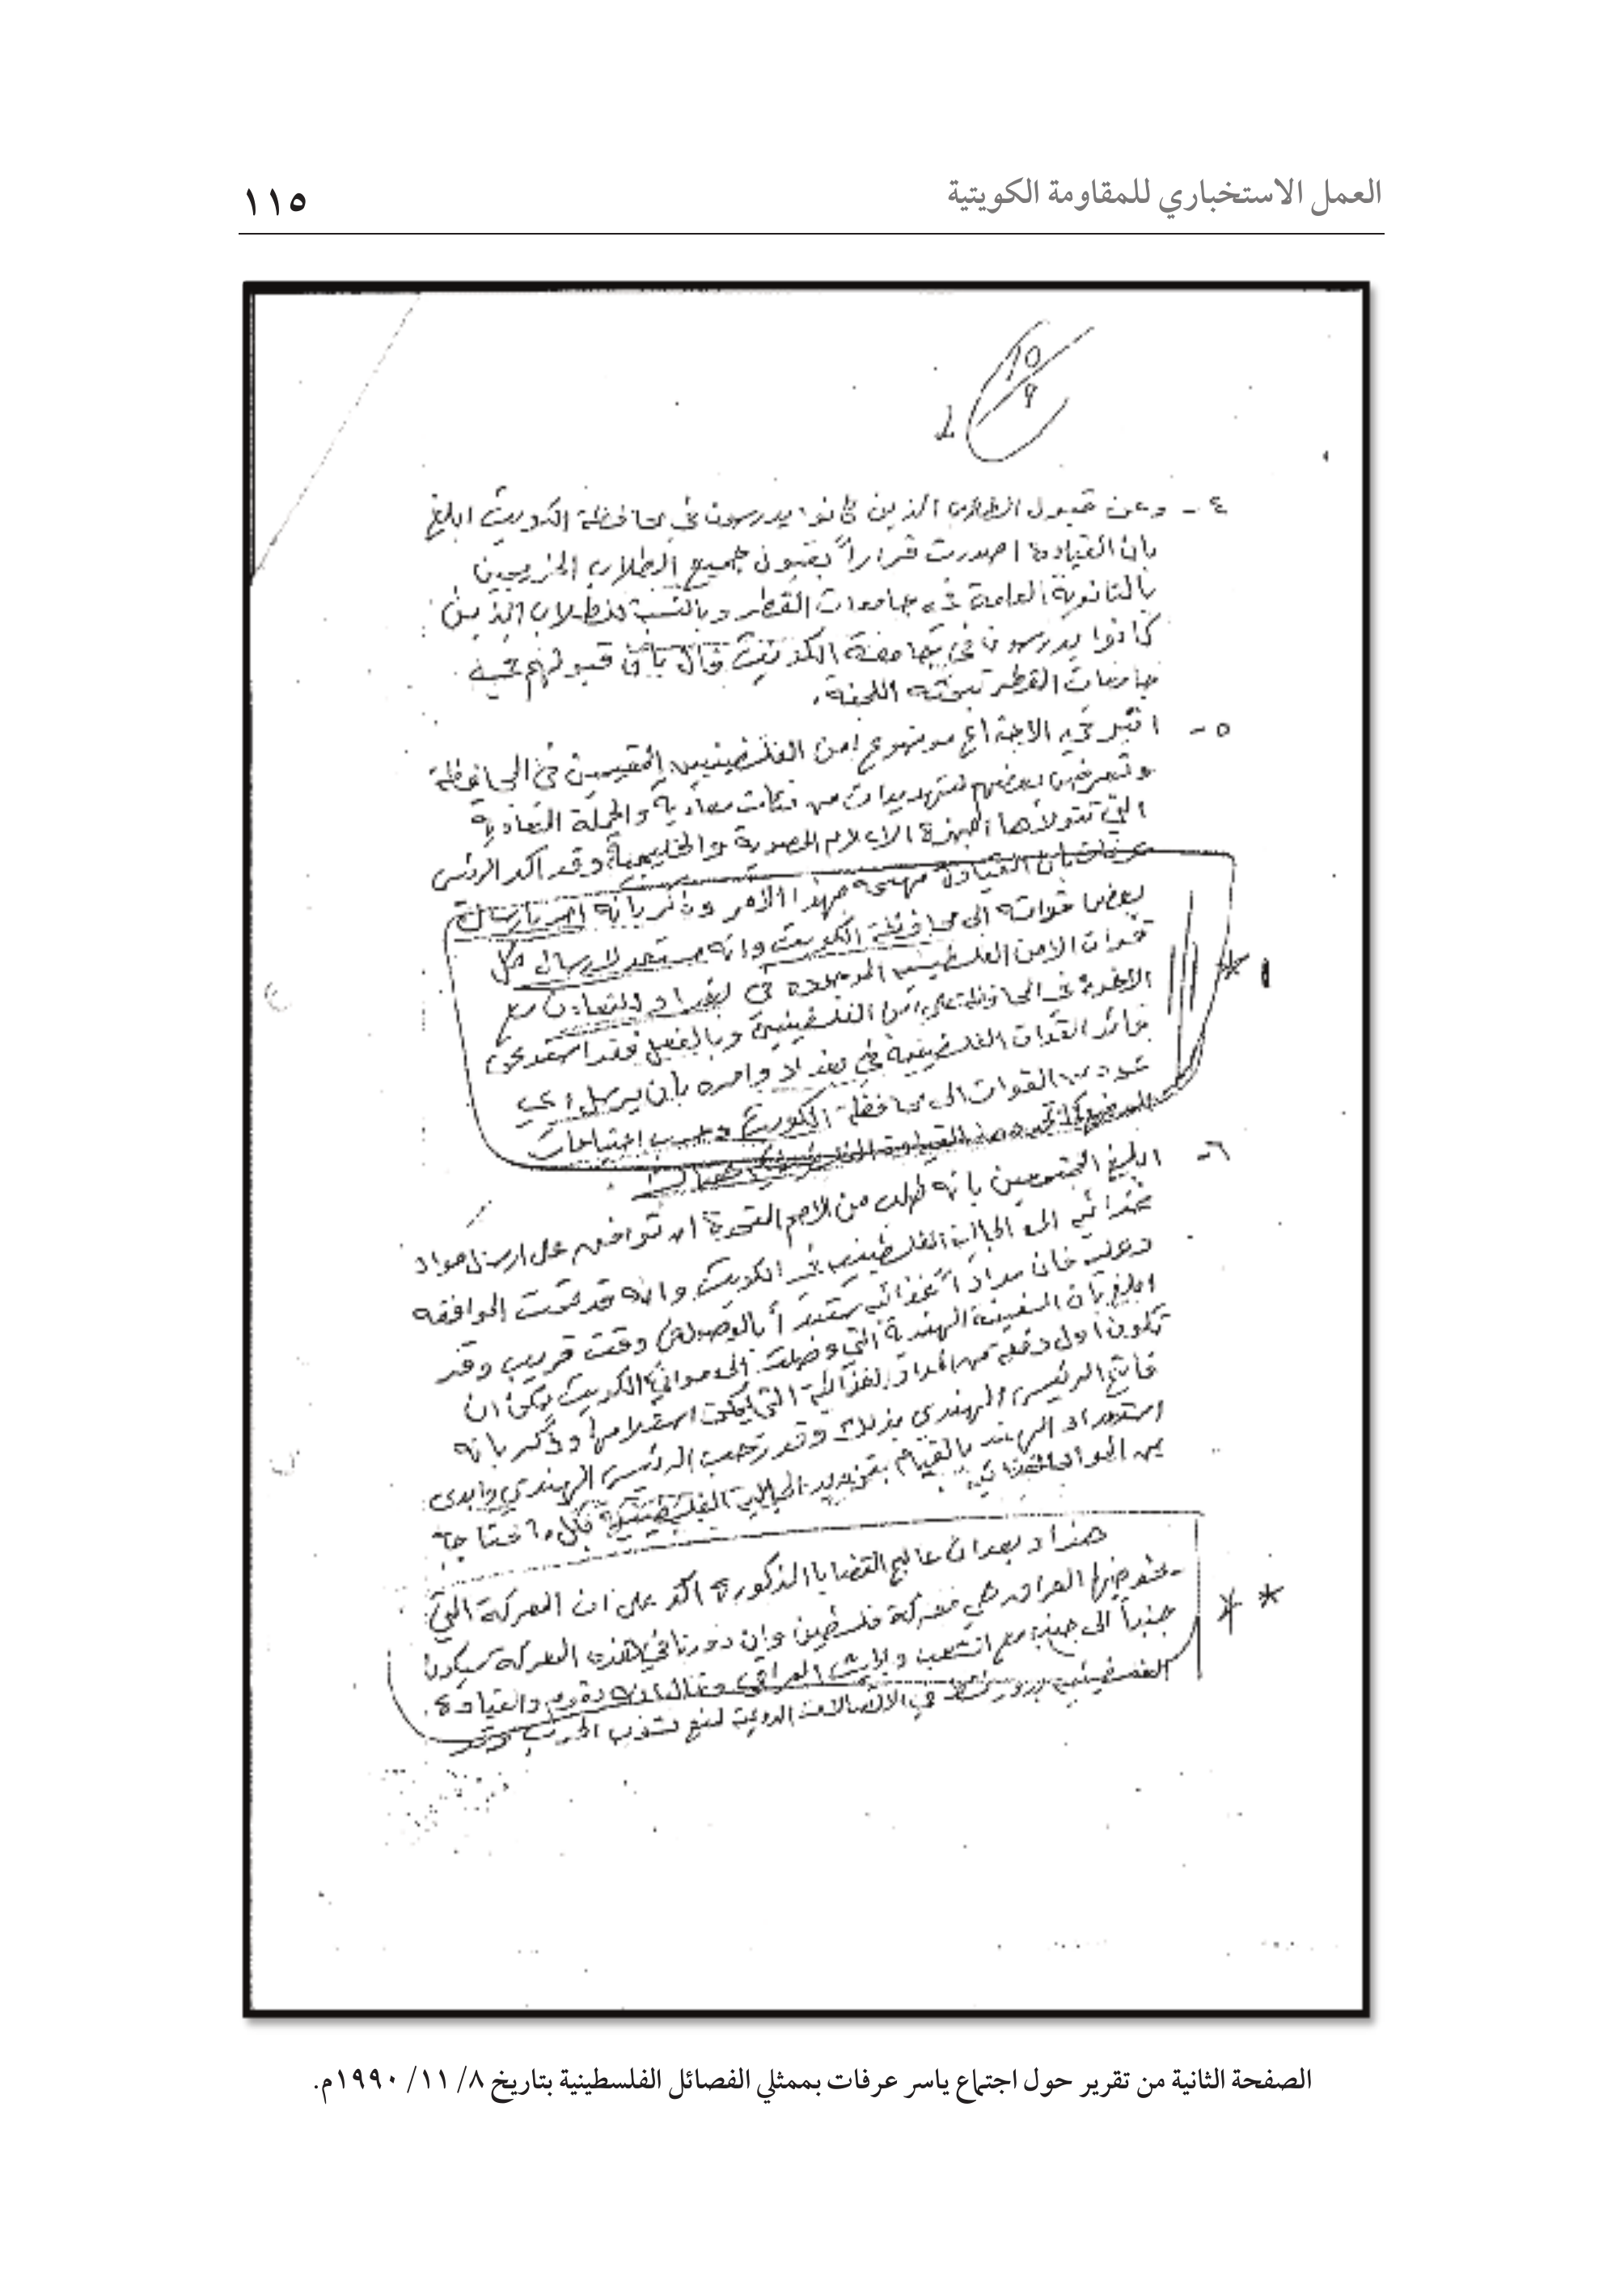 العمل الاستخباري للمقاومة الكويتية
١١٥
٤ - وعن قبول الطلاب الذين كانوا يدرسون في محافظة الكويت ابلغ
بان القيادة اصدرت قراراً بقبول جميع الطلاب الخريجين
بالثانوية العامة في جامعات القطر وبالنسبة للطلاب الذين
كانوا يدرسون في جامعة الكويت قال بأن قبولهم في
جامعات القطر تبحثه اللجنة.
٥ - اثير في الاجتماع موضوع امن الفلسطينيين المقيمين في المحافظة
وتعرض بعضهم لتهديدات من فئات معادية والحملة المعادية
التي تتولاها اجهزة الاعلام المصرية والخليجية وقد اكد الرئيس
عرفات بان القيادة مهتمة بهذا الامر وذكر بانه امر بارسال
بعض قواته الى محافظة الكويت وانه مستعد لارسال كل
قوات الامن الفلسطيني الموجودة في بغداد للتعاون مع
الاخوة في المحافظة على امن الفلسطينيين وبالفعل فقد استدعى
قائد القوات الفلسطينية في بغداد وامره بأن يرسل اي
عدد من القوات الى محافظة الكويت وحسب احتياجات
القيادة الفلسطينية
٦ - ابلغ المجتمعين بانه طلب من الامم المتحدة ان توافق على ارسال مواد
غذائية الى الجالية الفلسطينية في الكويت وانه قد تمت الموافقه
وعليه فان مواداً غذائيه ستبدأ بالوصول في وقت قريب وقد
ابلغ بأن السفينة الهندية التي وصلت الى موانئ الكويت يمكن ان
تكون اول دفعه من المواد الغذائية التي يمكن استلامها وذكر بانه
فاتح الرئيس الهندي بذلك وقد رحب الرئيس الهندي وابدى
استعداد الهند بالقيام بتزويد الجالية الفلسطينية بكل ما تحتاجه
من المواد الغذائية.
هذا وبعد ان عالج القضايا المذكورة اكد على ان المعركة التي
يخوضها العراق هي معركة فلسطين وان دورنا في هذه المعركة سيكون
جنباً الى جنب مع الشعب والجيش العراقي والقيادة
الفلسطينية بدور نشط في الاتصالات الدولية لمنع نشوب الحرب وقد
الصفحة الثانية من تقرير حول اجتماع ياسر عرفات بممثلي الفصائل الفلسطينية بتاريخ ٨/ ١١/ ١٩٩٠م.